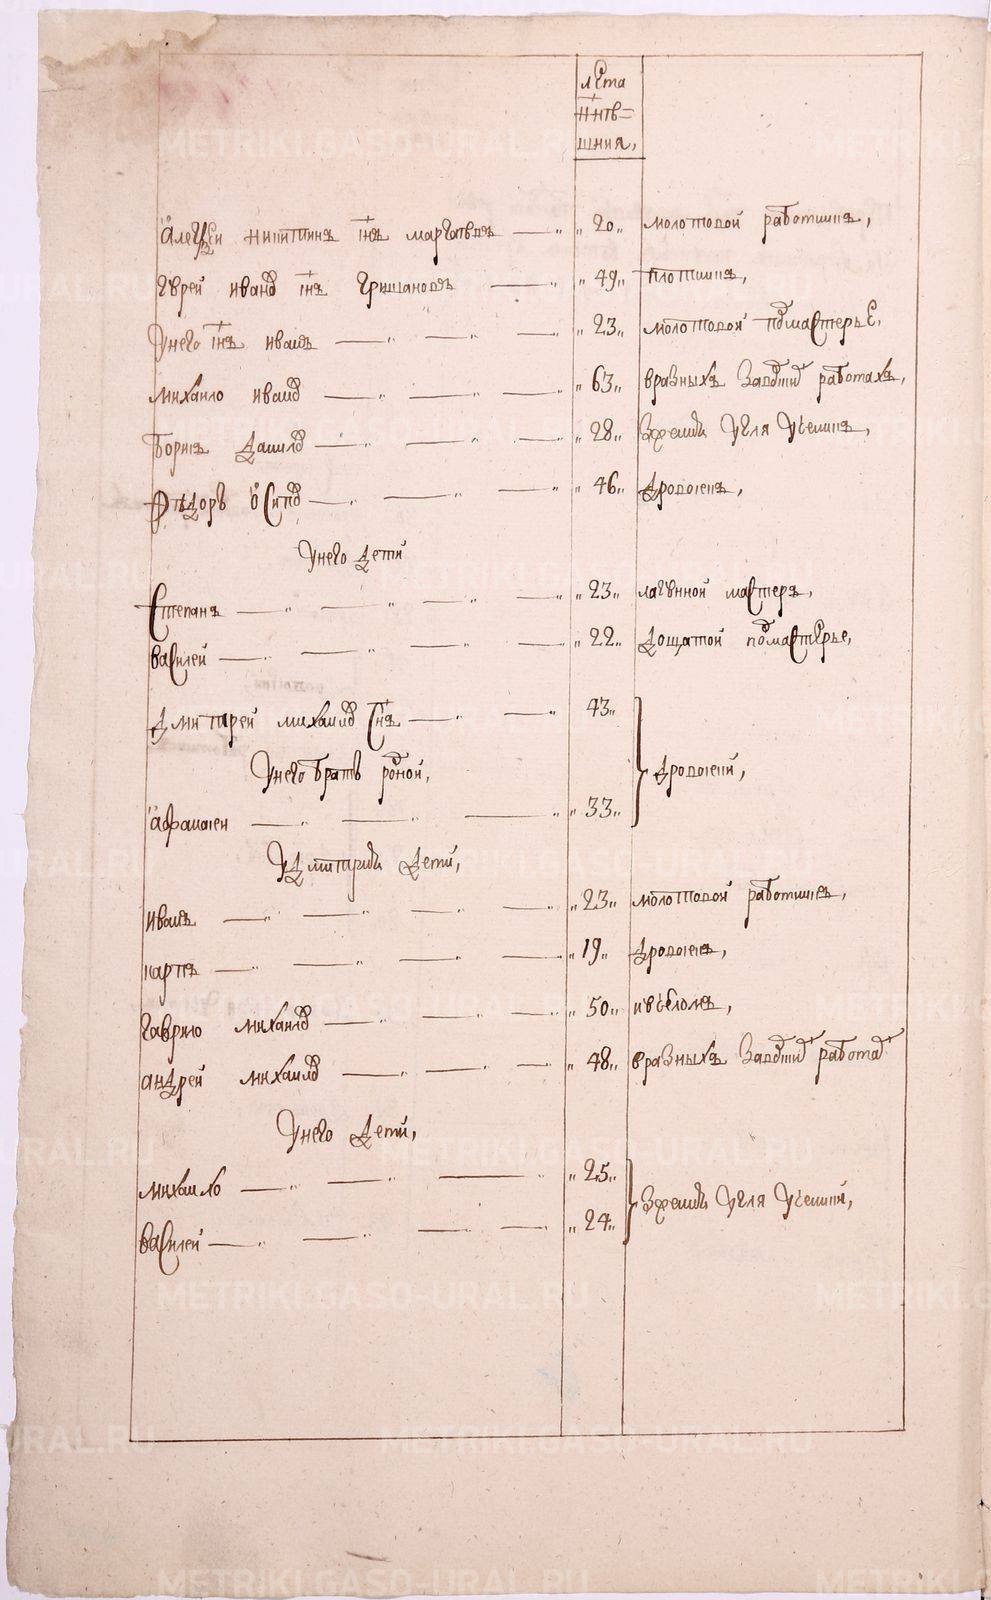 лета
ннѣ=
шния,
Алеѯей никитинъ снъ 20 молотовой работникъ,
Гврей иванов снъ Гришановъ 49 плотникъ,
Унего снъ иванъ 23 молотовой подмастерье,
михаило иванов 63 вразныхъ Завоцких работахъ,
Борисъ данилов 28 Зжения Угля Ученикъ,
Ѳедоръ Осипов 46 дровосекъ,
Унего дети
Степанъ 23 мастеръ,
василей 22 дощатой подмастерье,
дмитрей михаилов снъ 43
Унего братъ родной, дровосеки,
Афанасей 33
Удмитрия дети,
иванъ 23 молотовой работникъ,
карпъ 19 дровосекъ,
Гаврило михаилов 50
андрей михаилов 48 вразныхъ Завоцких работах
Унего дети,
михаило 25
Зжения Угля Ученики,
василей 24
METRIKI.GASO-URAL.RU